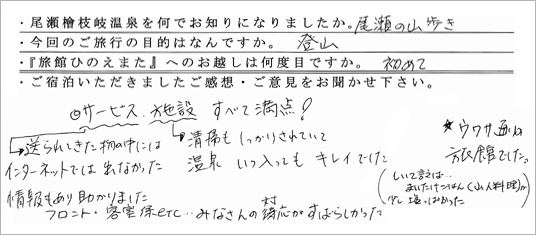 ・尾瀬檜枝岐温泉を何でお知りになりましたか。尾瀬の山歩き
・今回のご旅行の目的はなんですか。 登山
・『旅館ひのえまた』へのお越しは何度目ですか。 初めて
・ご宿泊いただきましたご感想・ご意見をお聞かせ下さい。
◎サービス、施設 すべて満点!
→送られてきた物の中には
インターネットでは出なかった
情報もあり助かりました
→清掃もしっかりされていて
温泉 いつ入っても キレイでした
フロント・客室係etc…みなさんの対応がすばらしかった
★ウワサ通りの
旅館でした。
(しいて言えば…
まいたけごはん(山人料理)が
少し塩っぱかった)